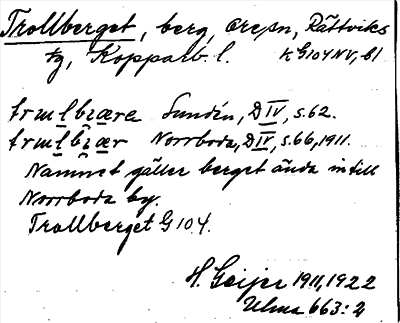 Trollberget, berg, Ore sn, Rättviks
tg, Kopparb. l. K G104 NV, b1
Sundén, D IV, s. 62.
Norrboda, D IV, s. 66, 1911.
Namnet gäller berget ända in till
Norrboda by.
Trollberget G 104.
H. Geijer 1911, 1922
Ulma 663:2